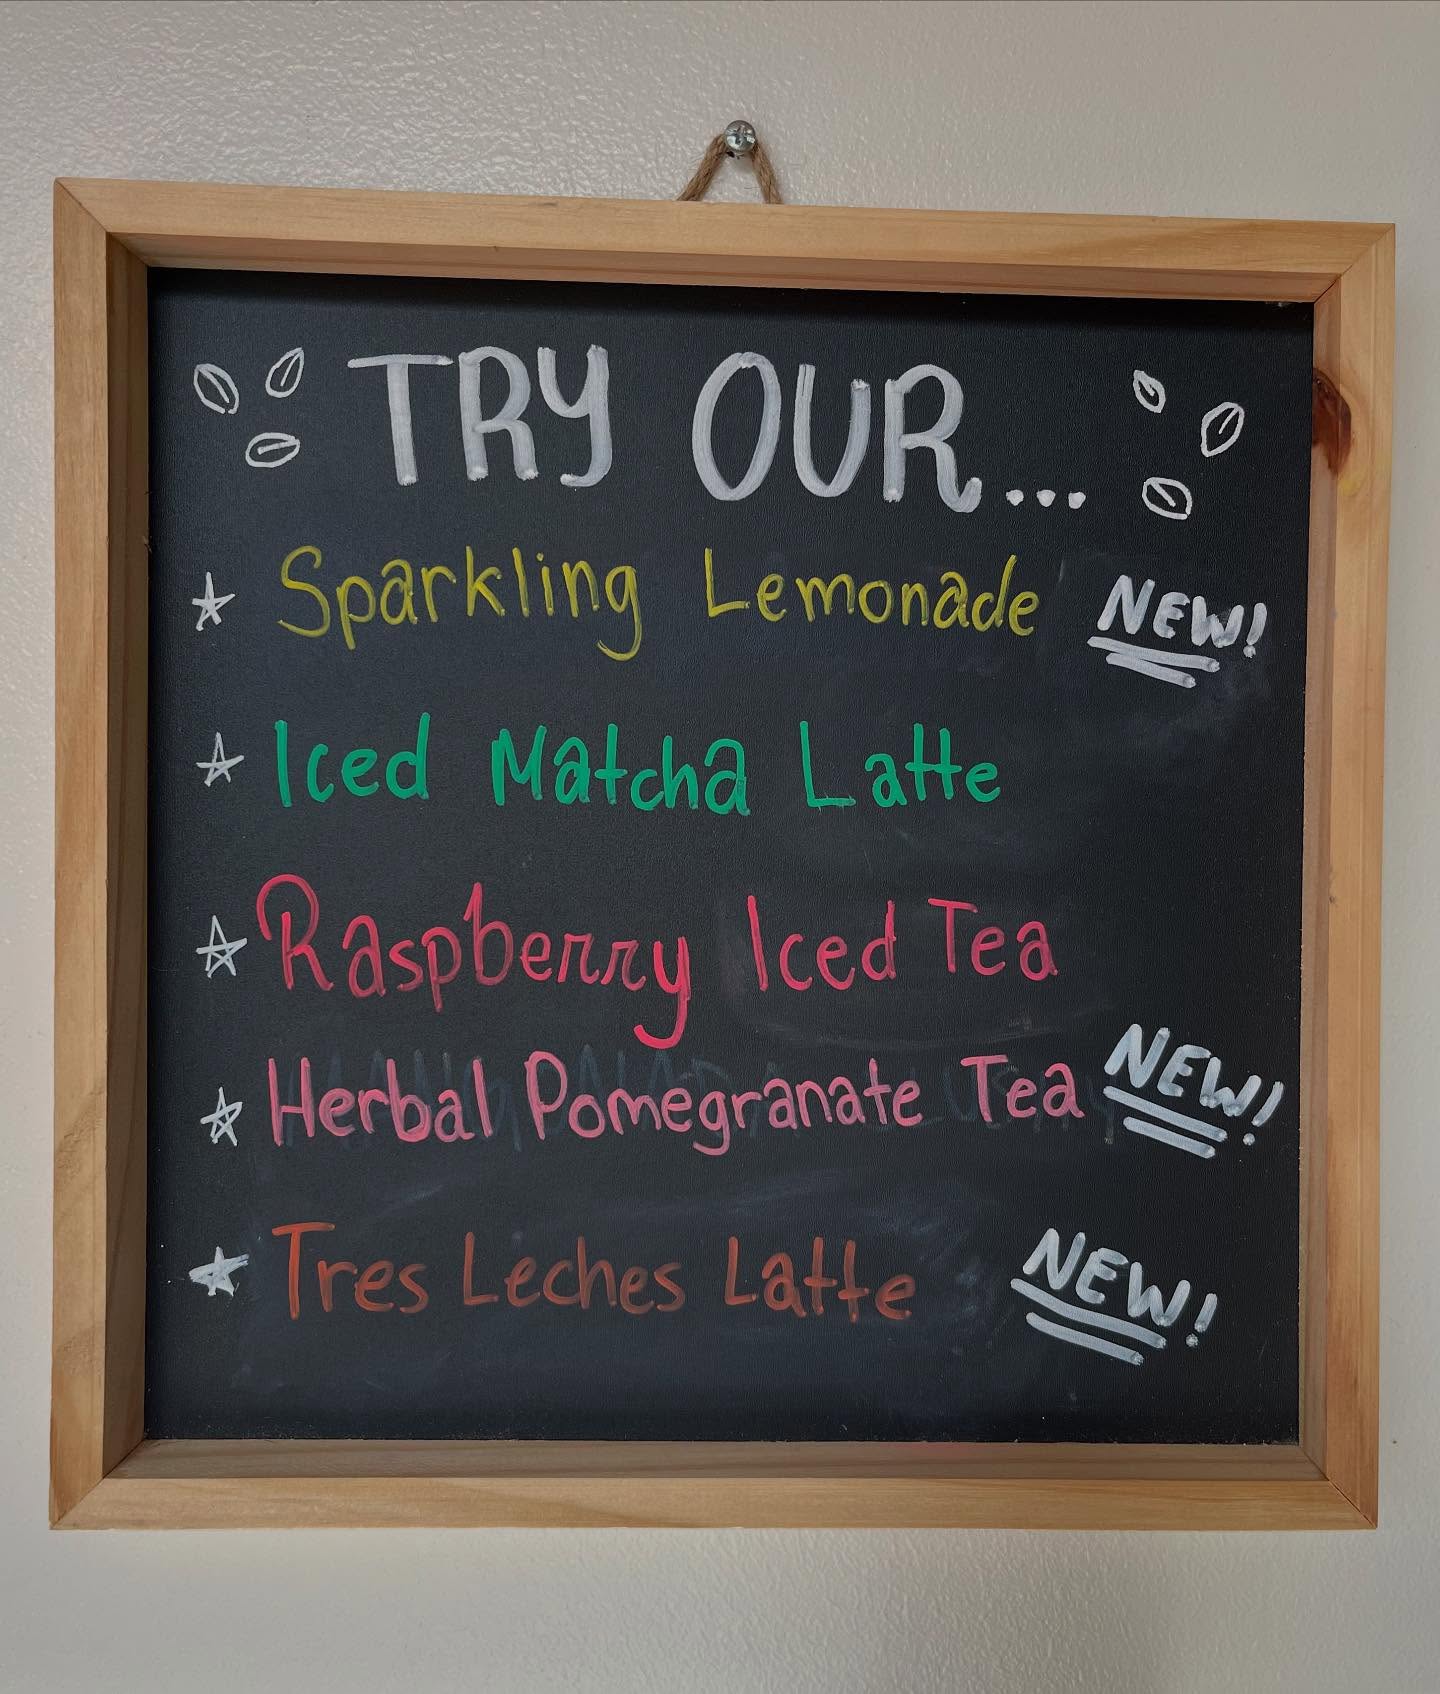 TRY OUR...
Sparkling Lemonade NEW!
Iced Matcha Latte
Raspberry Iced Tea
Herbal Pomegranate Tea NEW!
Tres Leches Latte NEW!